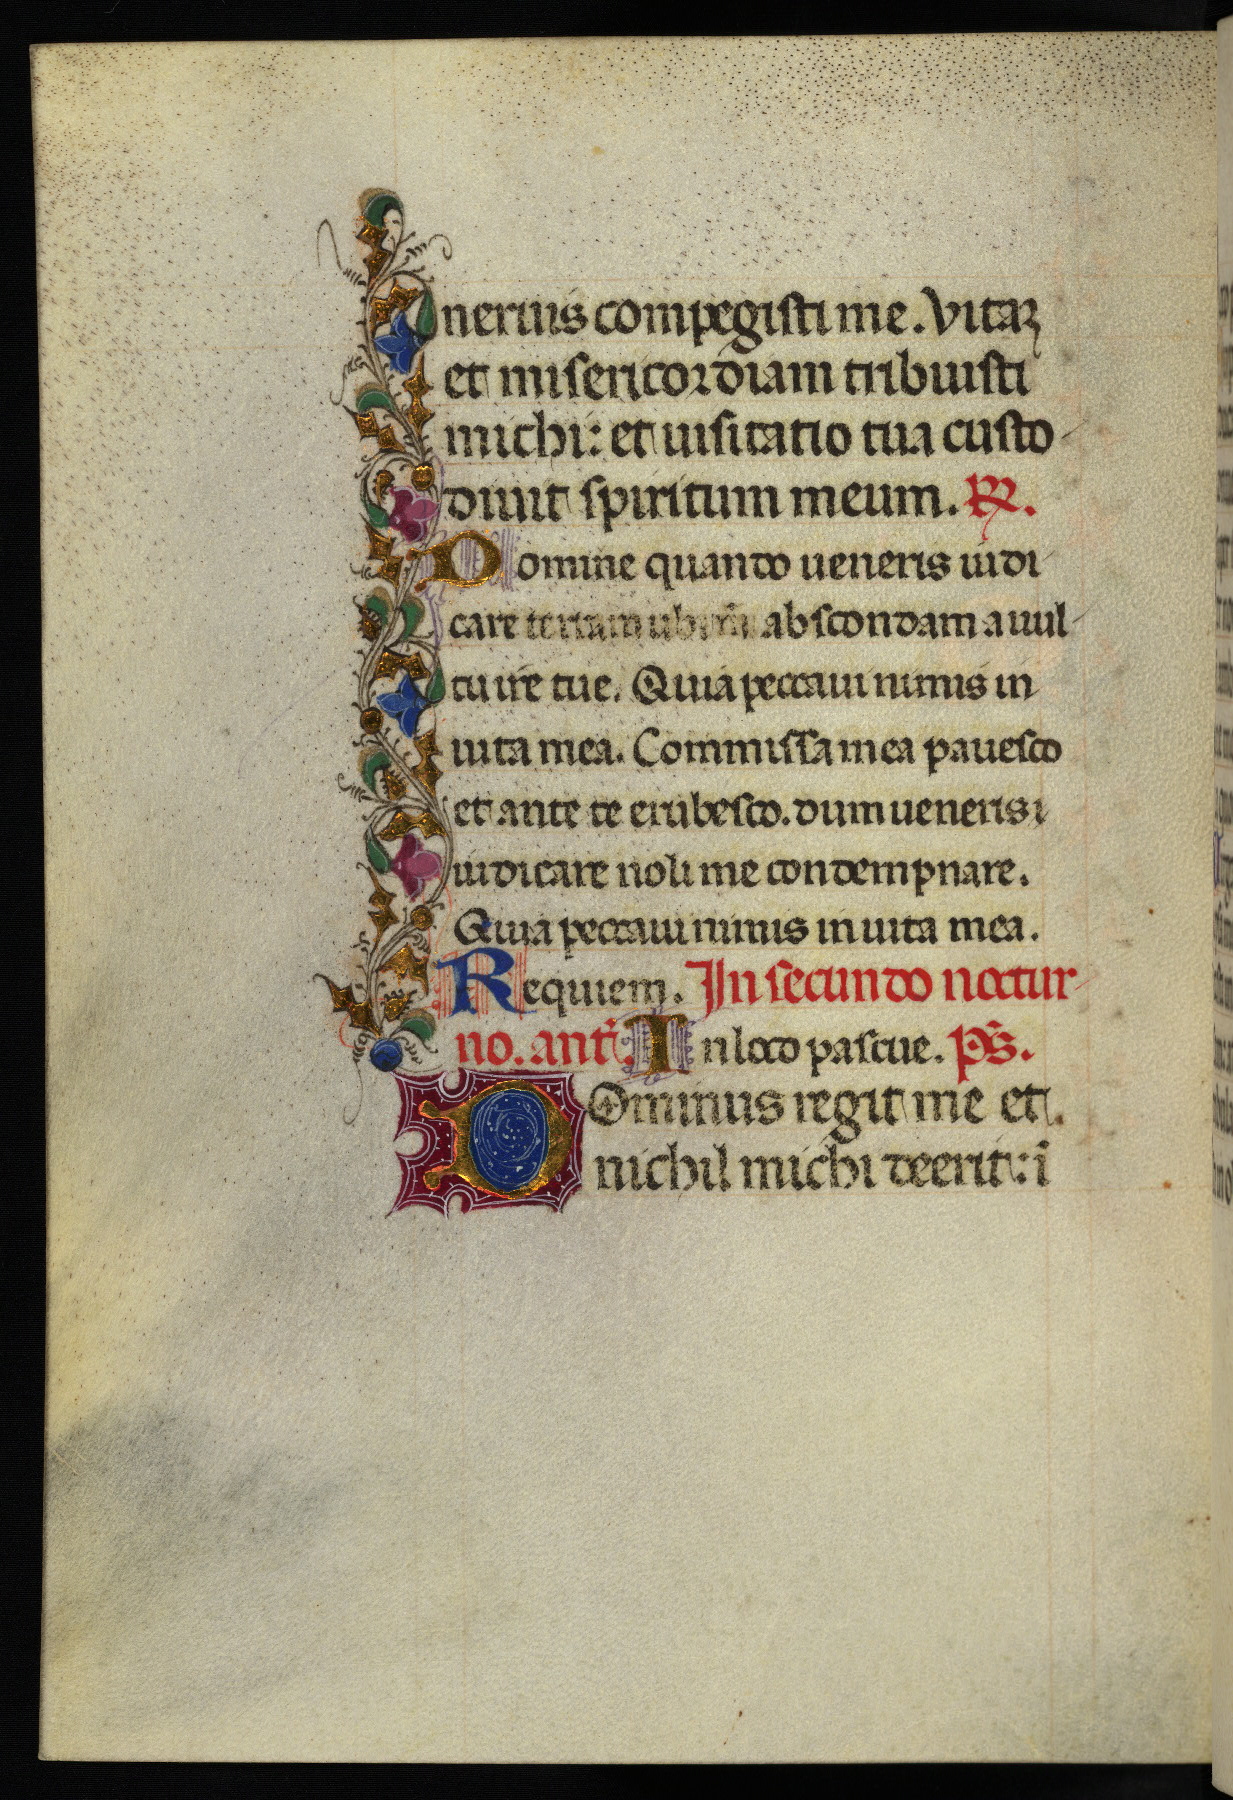 neruis compegisti me. Vitaꝫ
et misericordiam tribuisti
michi: et uisitatio tua custo-
diuit spiritum meum. ℞.
Domine quando ueneris iudi
care terram ubi me abscondam a uul-
tu ire tue. Quia peccaui nimis in
uita mea. Commissa mea pauesco
et ante te erubesco. dum ueneris i
iudicare noli me condempnare.
Quia peccaui nimis in uita mea.
Requiem. In secundo noctur-
no. ant̃. In loco pascue. p̃s.
Dominus regit me et.
nichil michi deerit: ĩ